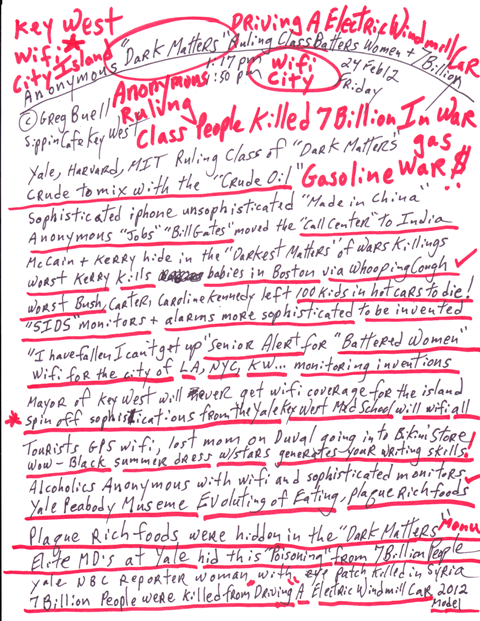 Key West
wifi*
City Island
DRIVING A Electric Windmill Car
Anonymous "Dark Matters" Ruling Class Batters Women + 7 Billion
1:17 pm
1:50 pm
wifi
City
24 Feb 12
Friday
© Greg Buell
Sippin Cafe Key West
Anonymous
Ruling
Class People Killed 7 Billion In War
gas
Yale, Harvard, MIT Ruling Class of "Dark Matters"
Gasoline War $
Crude to mix with the "Crude Oil"
Sophisticated iphone unsophisticated "Made in China"
Anonymous "Jobs" "Bill Gates" moved the "Call Center" to India
McCain + Kerry hide in the "Darkest Matters" of wars Killings
Worst Kerry Kills babies in Boston via Whooping Cough ✓
Worst Bush, Carter, Caroline Kennedy left 100 kids in hot cars to die!
"SIDS" monitors + alarms more sophisticated to be invented
"I have fallen I can't get up" Senior Alert for "Battered Women"
Wifi for the city of LA, NYC, KW... monitoring inventions
Mayor of Key West will never get wifi coverage for the island
* spin off sophistications from the Yale Key West Med School will wifi all
Tourists GPS wifi, lost mom on Duval going into Bikini Store
Wow - Black summer dress w/stars generates your writing skills!
Alcoholics Anonymous with wifi and sophisticated monitors ✓
Yale Peabody Museme Evoluting of Eating, plaque Rich foods
Plaque Rich foods were hidden in the "Dark Matters" Menu
Elite MD's at Yale hid this "Poisoning" from 7 Billion People
Yale NBC Reporter woman with eye patch killed in Syria
7 Billion People were killed from Driving A Electric Windmill Car 2012
Model